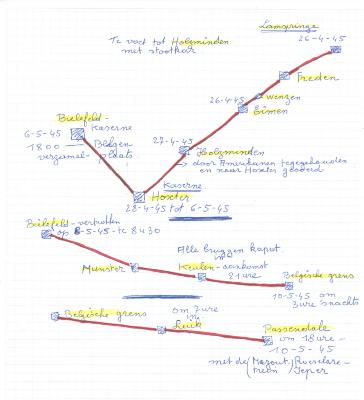 Lamspringe
26-4-45
Te voet tot Holzminden
met stootkar
Freden
Wenzen
26-4-45
Eimen
Bielefeld-
Kaserne
6-5-45
1800
verzamel-plaats
27-4-45
Holzminden
door Amerikanen tegengehouden
en naar Hoxter geleid
Kaserne
Hoxter
28-4-45 tot 6-5-45
Bielefeld-vertrokken
op 8-5-45-te 8u30
Alle bruggen kaput
Munster
Keulen-aankomst
21ure
Belgische grens
10-5-45 om
3ure snachts
Belgische grens
om 7ure
in
Luik
Passendale
om 18ure-
10-5-45
met de (Mazout
trein) Roeselare-
Ieper